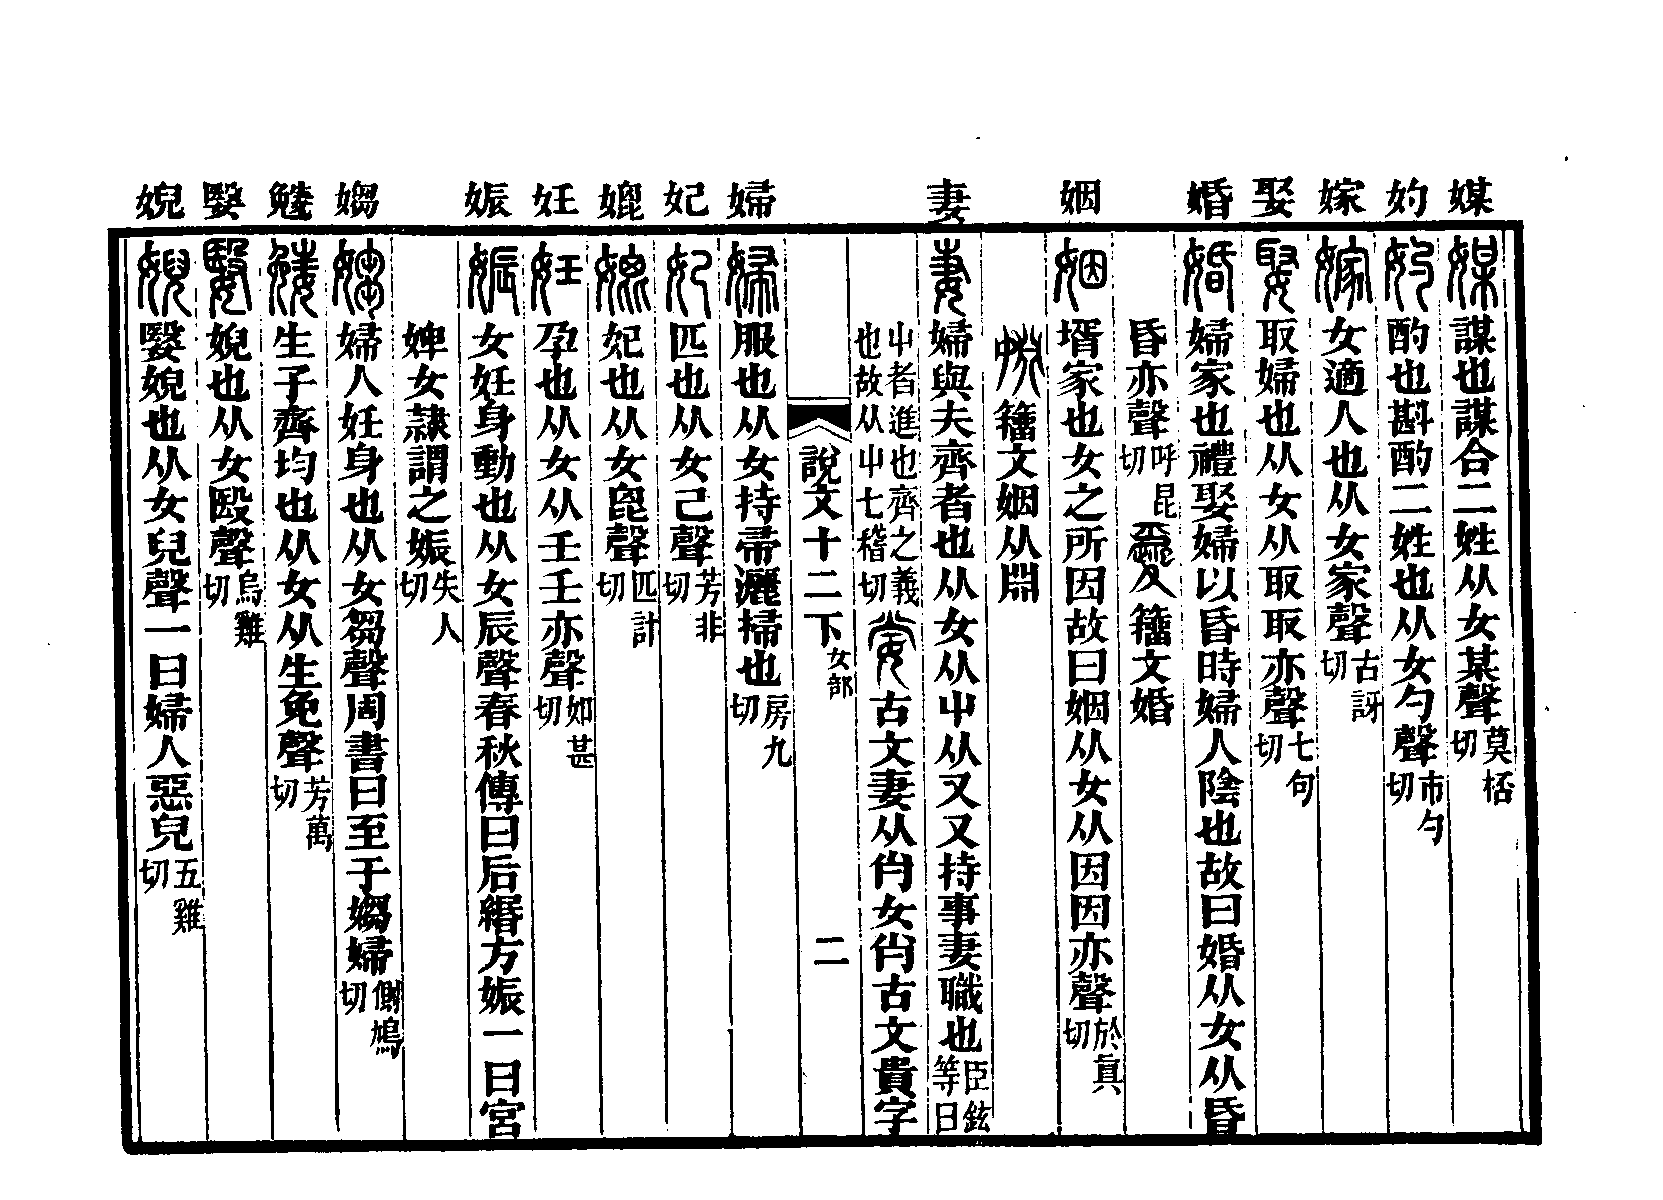 媒 妁 嫁 娶 婚 姻 妻 婦 妃 媲 妊 娠 媰 㝃 嫛 婗
媒 謀也謀合二姓从女某聲莫桮切
妁 酌也斟酌二姓也从女勺聲市勺切
嫁 女適人也从女家聲古訝切
娶 取婦也从女从取取亦聲七句切
婚 婦家也禮娶婦以昏時婦人陰也故曰婚从女从昏
昏亦聲呼昆切 籒文婚
姻 壻家也女之所因故曰姻从女从因因亦聲於眞切
婣 籒文姻从𣶒
妻 婦與夫齊者也从女从屮从又又持事妻職也臣鉉等曰
屮者進也齊之義也故从屮七稽切 古文妻从𡭗女𡭗古文貴字
說文十二下 女部 二
婦 服也从女持帚灑掃也房九切
妃 匹也从女己聲芳非切
媲 妃也从女𣬉聲匹計切
妊 孕也从女从壬壬亦聲如甚切
娠 女妊身動也从女辰聲春秋傳曰后緡方娠一曰宮
婢女隷謂之娠失人切
媰 婦人妊身也从女芻聲周書曰至于媰婦側鳩切
㝃 生子齊均也从女从生免聲芳萬切
嫛 婗也从女殹聲烏雞切
婗 嫛婗也从女兒聲一曰婦人惡皃五雞切